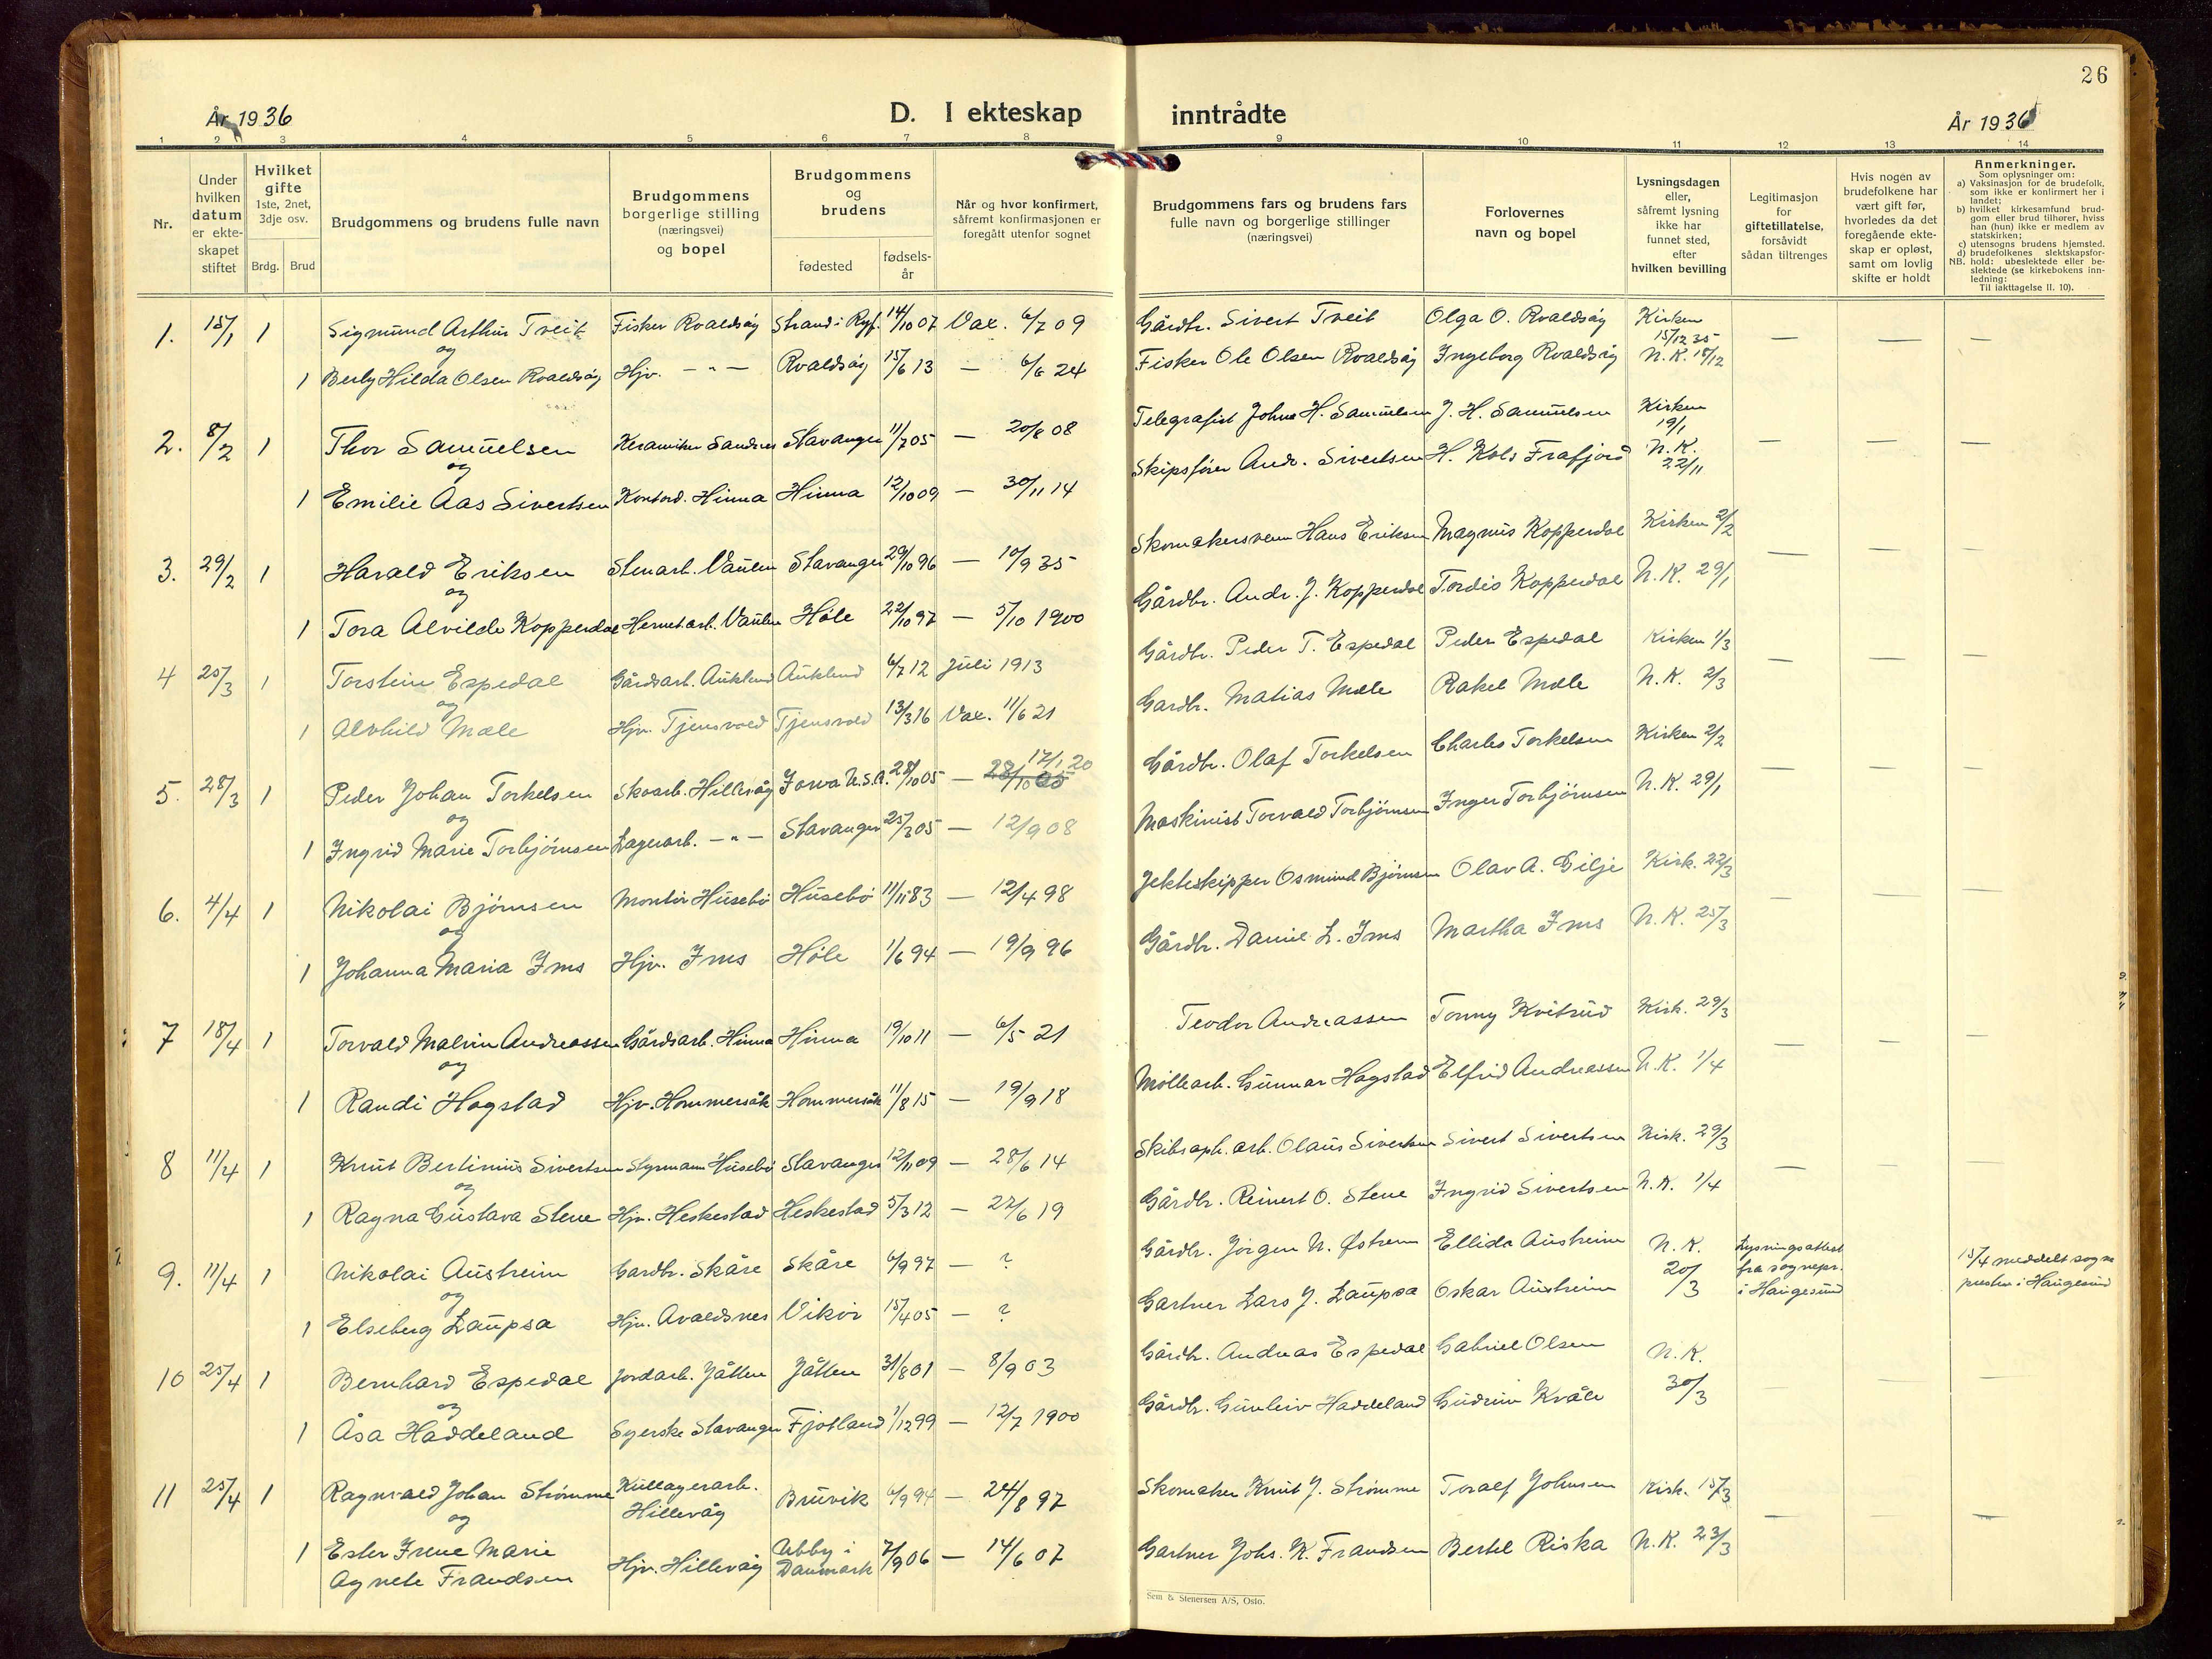 26
År 1936
D. I ekteskap
inntrådte
År 1936
1 2 3 4 5 6 7 8 9 10 11 12 13 14
Nr.
Under hvilken datum er ekteskapet stiftet
Hvilket gifte 1ste, 2net, 3dje osv.
Brdg. Brud
Brudgommens og brudens fulle navn
Brudgommens borgerlige stilling (næringsvei) og bopel
Brudgommens og brudens
fødested
fødselsår
Når og hvor konfirmert, såfremt konfirmasjonen er foregått utenfor sognet
Brudgommens fars og brudens fars fulle navn og borgerlige stillinger (næringsvei)
Forlovernes navn og bopel
Lysningsdagen eller, såfremt lysning ikke har funnet sted, efter hvilken bevilling
Legitimasjon for giftetillatelse, forsåvidt sådan tiltrenges
Hvis nogen av brudefolkene har vært gift før, hvorledes da det foregående ekteskap er opløst, samt om lovlig skifte er holdt
Anmerkninger.
Som oplysninger om:
a) Vaksinasjon for de brudefolk, som ikke er konfirmert her i landet;
b) hvilket kirkesamfund brudgom eller brud tilhører, hviss han (hun) ikke er medlem av statskirken;
c) utensogns brudens hjemsted.
d) brudefolkenes slektskapsforhold: ubeslektede eller beslektede (se kirkebokens innledning:
NB.
Til iakttagelse II. 10).
1. 15/1 1 Sigmund Arthur Tveit Fisker Roaldsøy Strand i Ryf. 14/10 07 Vax. 6/7 09 Gårdbr. Sivert Tveit Olga O. Roaldsøy Kirken 15/12 35 — — —
og
1 Berly Hilda Olsen Roaldsøy Hjv. — " — Roaldsøy 15/6 13 — 6/6 24 Fisker Ole Olsen Roaldsøy Ingeborg Roaldsøy N.K. 18/12
2. 8/2 1 Thor Samuelsen Keramiker Sandnes Stavanger 11/7 05 — 20/8 08 Telegrafist Johns H. Samuelsen J. H. Samuelsen Kirken 19/1 — — —
og
1 Emilie Aas Sivertsen Kontord. Hinna Hinna 12/10 09 — 30/11 14 Skipsfører Andr. Sivertsen H. Kols Frafjord N.K. 22/11
3. 29/2 1 Harald Eriksen Stenarb. Vaulen Stavanger 29/10 96 — 10/9 35 Skomakersvenn Hans Eriksen Magnus Kopperdal Kirken 2/2 — — —
og
1 Tora Alvilde Kopperdal Hermet.arb. Vaulen Høle 22/10 97 — 5/10 1900 Gårdbr. Andr. J. Kopperdal Tordis Kopperdal N.K. 29/1
4 25/3 1 Torstein Espedal Gårdsarb. Auklend Auklend 6/7 12 Juli 1913 Gårdbr. Peder T. Espedal Peder Espedal Kirken 1/3 — — —
og
1 Alvhild Mæle Hjv. Tjensvold Tjensvold 13/3 16 Vax. 11/6 21 Gardbr. Matias Mæle Rakel Mæle N.K. 2/3
5. 28/3 1 Peder Johan Torkelsen Skoarb. Hillevåg Iowa U.S.A. 28/10 05 — 28/10 05 17/1 20 Gårdbr. Olaf Torkelsen Charles Torkelsen Kirken 2/2 — — —
og
1 Ingrid Marie Torbjørnsen Lagerarb. — " — Stavanger 25/3 05 — 12/9 08 Maskinist Torvald Torbjørnsen Inger Torbjørnsen N.K. 29/1
6. 4/4 1 Nikolai Bjørnsen Montør Husebø Husebø 11/11 83 — 12/4 98 Jekteskipper Osmund Bjørnsen Olav A. Gilje Kirk. 22/3 — — —
og
1 Johanna Maria Ims Hjv. Ims Høle 1/6 94 — 19/9 96 Gårdbr. Daniel L. Ims Martha Ims N.K. 25/3
7 18/4 1 Torvald Malvin Andreassen Gårdsarb. Hinna Hinna 19/10 11 — 6/5 21 Teodor Andreassen Tonny Kvitrud Kirk. 29/3 — — —
og
1 Randi Hogstad Hjv. Hommersåk Hommersåk 11/8 15 — 19/9 18 Møllearb. Gunnar Hogstad Elfrid Andreassen N.K. 1/4
8 11/4 1 Knut Bertinius Sivertsen Styrmann Husebø Stavanger 12/11 09 — 28/6 14 Skibsoph.arb. Olaus Sivertsen Sivert Sivertsen Kirk. 29/3 — — —
og
1 Ragna Gustava Stene Hjv. Heskestad Heskestad 5/3 12 — 22/6 19 Gårdbr. Reinert O. Stene Ingrid Sivertsen N.K. 1/4
9. 11/4 1 Nikolai Austreim Gardbr. Skåre Skåre 6/9 97 — ? Gårdbr. Jørgen N. Østrem Ellida Austreim N.K. 20/3 Lysningsattest fra sognepr. i Haugesund 15/4 meddelt sogne presten i Haugesund
og
1 Elseberg Laupsa Hjv. Avaldsnes Vikør 15/4 05 — ? Gartner Lars J. Laupsa Oskar Austreim
10 25/4 1 Bernhard Espedal Jordarb. Jåtten Jåtten 31/8 01 — 8/9 03 Gårdbr. Andreas Espedal Gabriel Olsen N.K. 30/3 — — —
og
1 Åsa Haddeland Syerske Stavanger Fjotland 1/12 99 — 12/7 1900 Gårdbr. Gunleiv Haddeland Gudrun Kvåle
11 25/4 1 Ragnvald Johan Strømme Kullagerarb. Hillevåg Bruvik 6/9 94 — 24/8 97 Skomaker Knut J. Strømme Toralf Johnsen Kirk. 15/3 — — —
og
1 Ester Irene Marie Agnete Frandsen Hjv. Hillevåg Ubby i Danmark 7/9 06 — 14/6 07 Gartner Johs. K. Frandsen Bertel Riska N.K. 23/3
Sem & Stenersen A/S, Oslo.